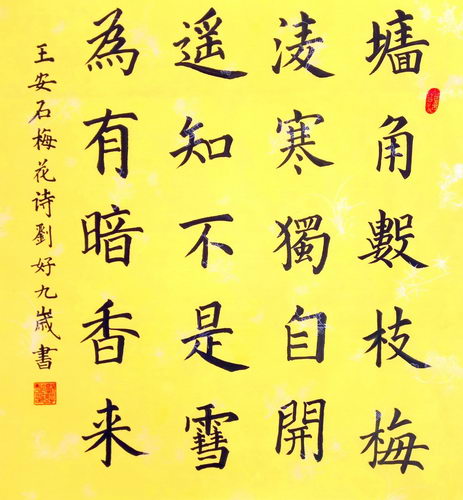 墻角數枝梅
淩寒獨自開
遥知不是雪
為有暗香来
王安石梅花诗劉好九歲書